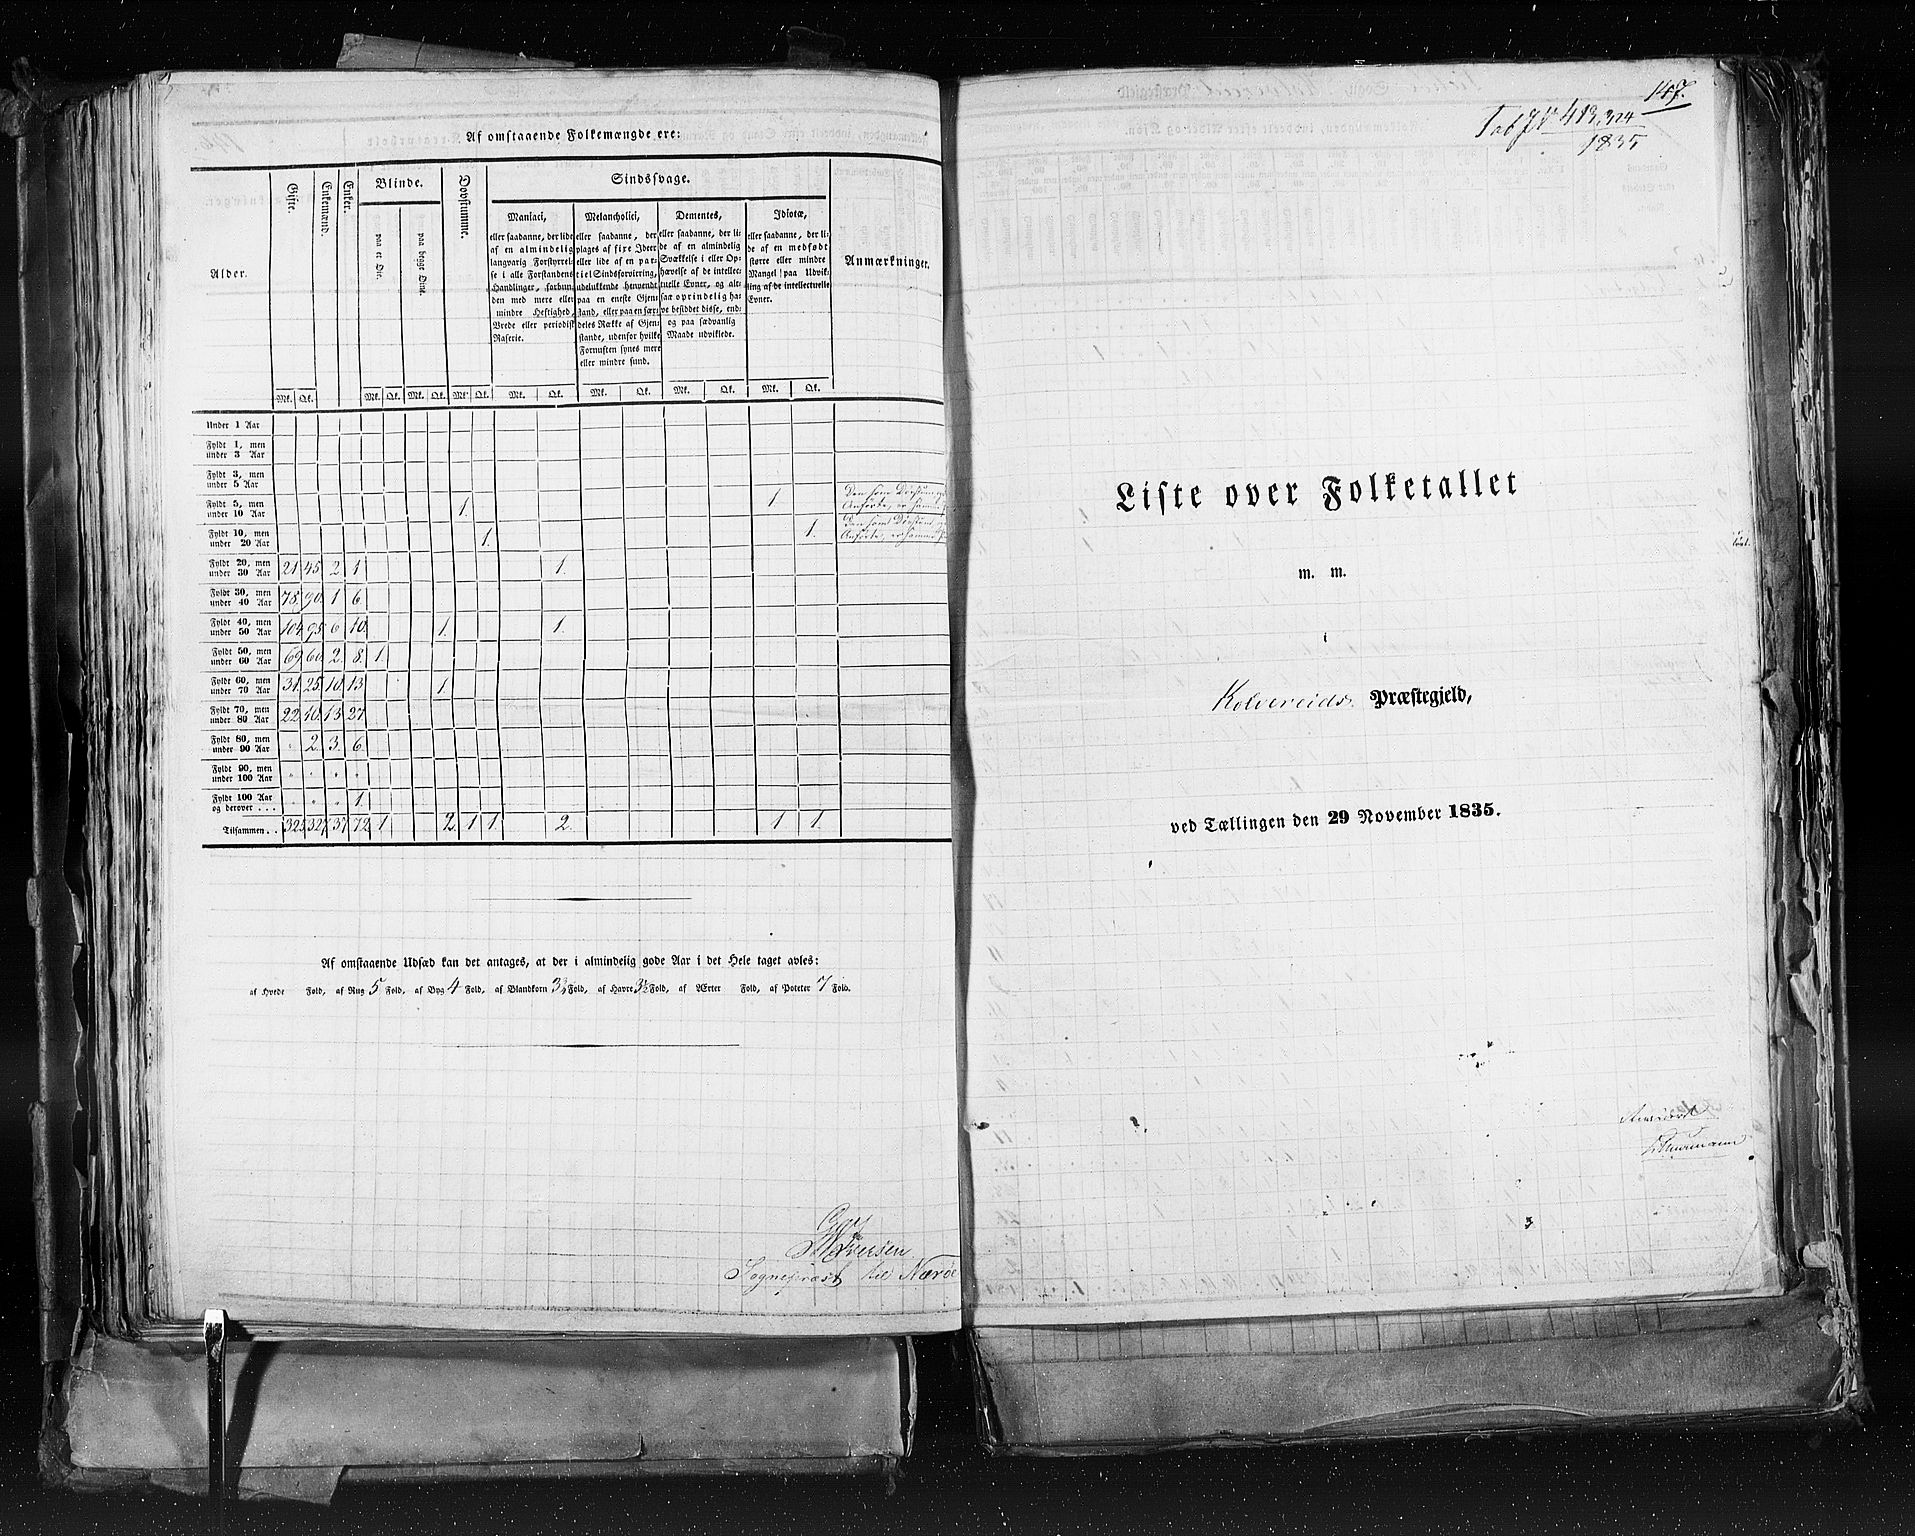 Af omstaaende Folkemængde ere:
Alder. Gifte. Enkemænd. Enker. Blinde. Døvstumme. Sindssvage. Anmærkninger.
paa et Øie. paa begge Øine.
Maniaci,
eller saadanne, der lide
af en almindelig
langvarig Forstyrrel-
se i alle Forstandens
Handlinger, forbun-
den med mere eller
mindre Heftighed,
Vrede eller periodisk
Raserie.
Melancholici,
eller saadanne, der
plages af fixe Ideer
eller lide af en par-
tiel Sindsforvirring,
udelukkende henvendt
paa en eneste Gjen-
stand, eller paa en sær-
deles Række af Gjen-
stande, udenfor hvilke
Fornuften synes mere
eller mindre sund.
Dementes,
eller saadanne, der li-
de af en almindelig
Svækkelse i eller Op-
hævelse af de intellec-
tuelle Evner, og alt-
saa oprindelig ha-
ve besiddet disse, end-
og paa sædvanlig
Maade udviklede.
Idiotæ,
eller saadanne, der li-
de af en medfødt
større eller mindre
Mangel paa Udvik-
ling af de intellectuelle
Evner.
Mk. Qk. Mk. Qk. Mk. Qk. Mk. Qk. Mk. Qk. Mk. Qk. Mk. Qk. Mk. Qk.
Under 1 Aar
Fyldt 1, men
under 3 Aar
Fyldt 3, men
under 5 Aar
Fyldt 5, men
under 10 Aar 1. 1. Den som Døvstum
Anførte, er
Fyldt 10, men
under 20 Aar 1. 1. Den som Døvstum
Anførte, er
Fyldt 20, men
under 30 Aar 21 45 2 1 1.
Fyldt 30, men
under 40 Aar 78. 90. 1 6.
Fyldt 40, men
under 50 Aar 104 95 6 10. 1. 1.
Fyldt 50, men
under 60 Aar 69 60. 2. 8. 1.
Fyldt 60, men
under 70 Aar 31. 25. 10. 13 1.
Fyldt 70, men
under 80 Aar 22 10. 13 27
Fyldt 80, men
under 90 Aar " 2. 3. 6.
Fyldt 90, men
under 100 Aar " " " "
Fyldt 100 Aar
og derover . . . " " " 1.
Tilsammen . . 325 327 37 72 1 2. 1 1. 2. 1 1.
Af omstaaende Udsæd kan det antages, at der i almindelig gode Aar i det Hele taget avles:
af Hvede Fold, af Rug 5 Fold, af Byg 4 Fold, af Blandkorn 3½ Fold, af Havre 3½ Fold, af Ærter Fold, af Poteter 7 Fold.
Iversen
Sognepræst til Nærøe
147.
Tab J No 413, 324
1835
Liste over Folketallet
m. m.
i
Kolvereids Præstegjeld,
ved Tællingen den 29 November 1835.
Revideret